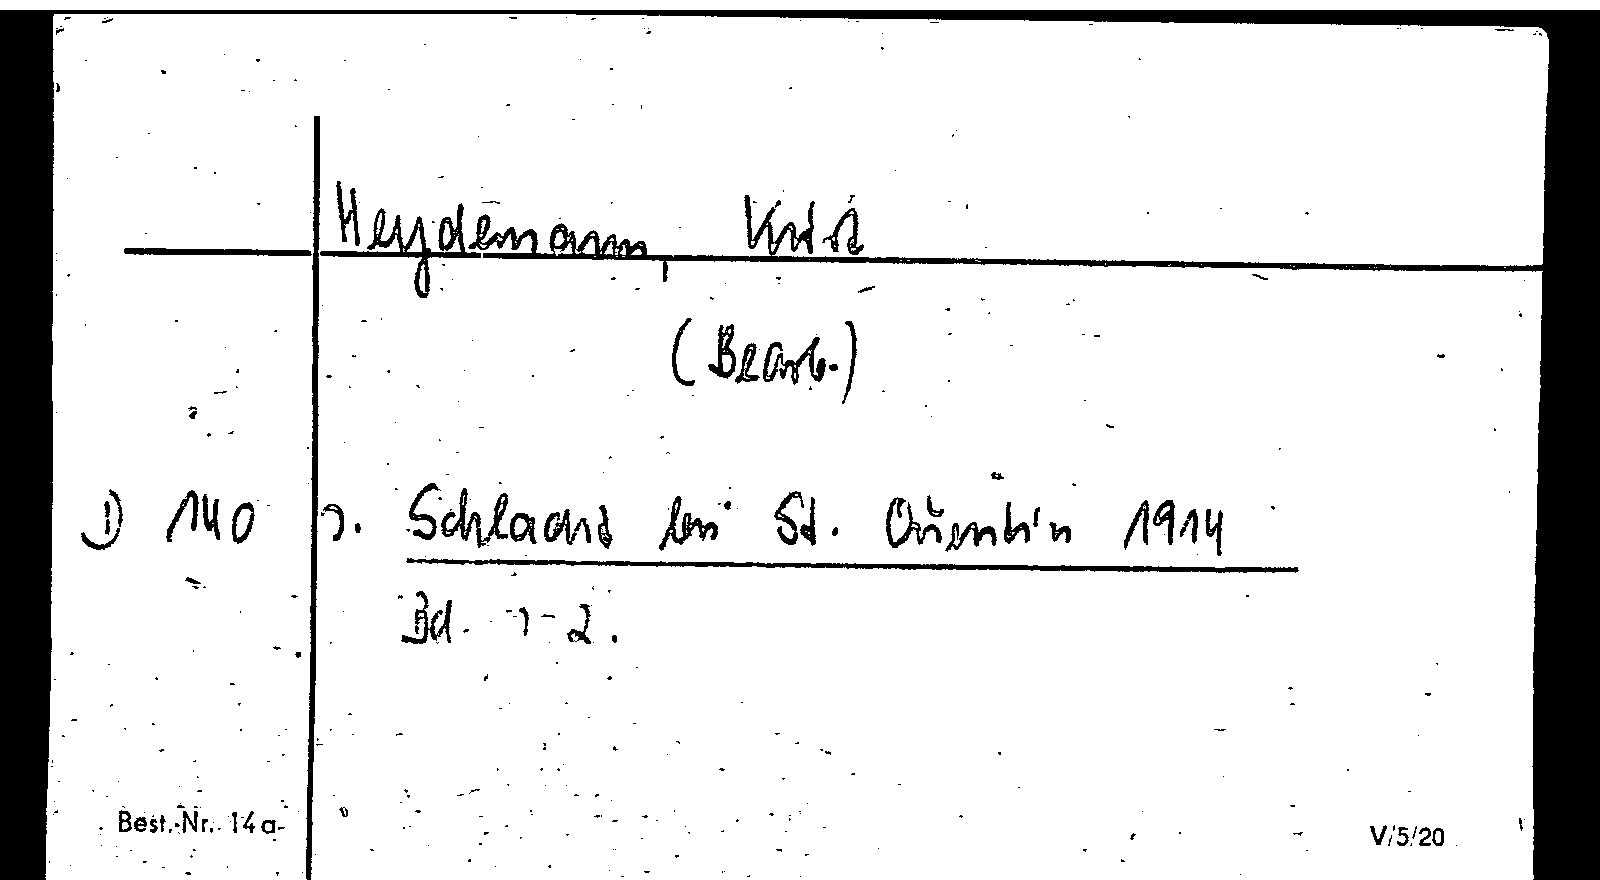 Heydemann, Kurt
(Bearb.)
D 140 s. Schlacht bei St. Quentin 1914
Bd. 1-2.
Best.-Nr. 14a
V/5/20